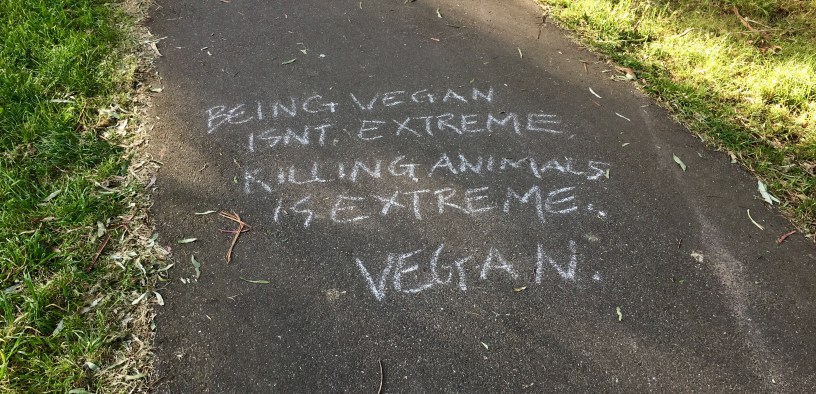 BEING VEGAN
ISNT. EXTREME.
KILLING ANIMALS
IS EXTREME.
VEGAN.